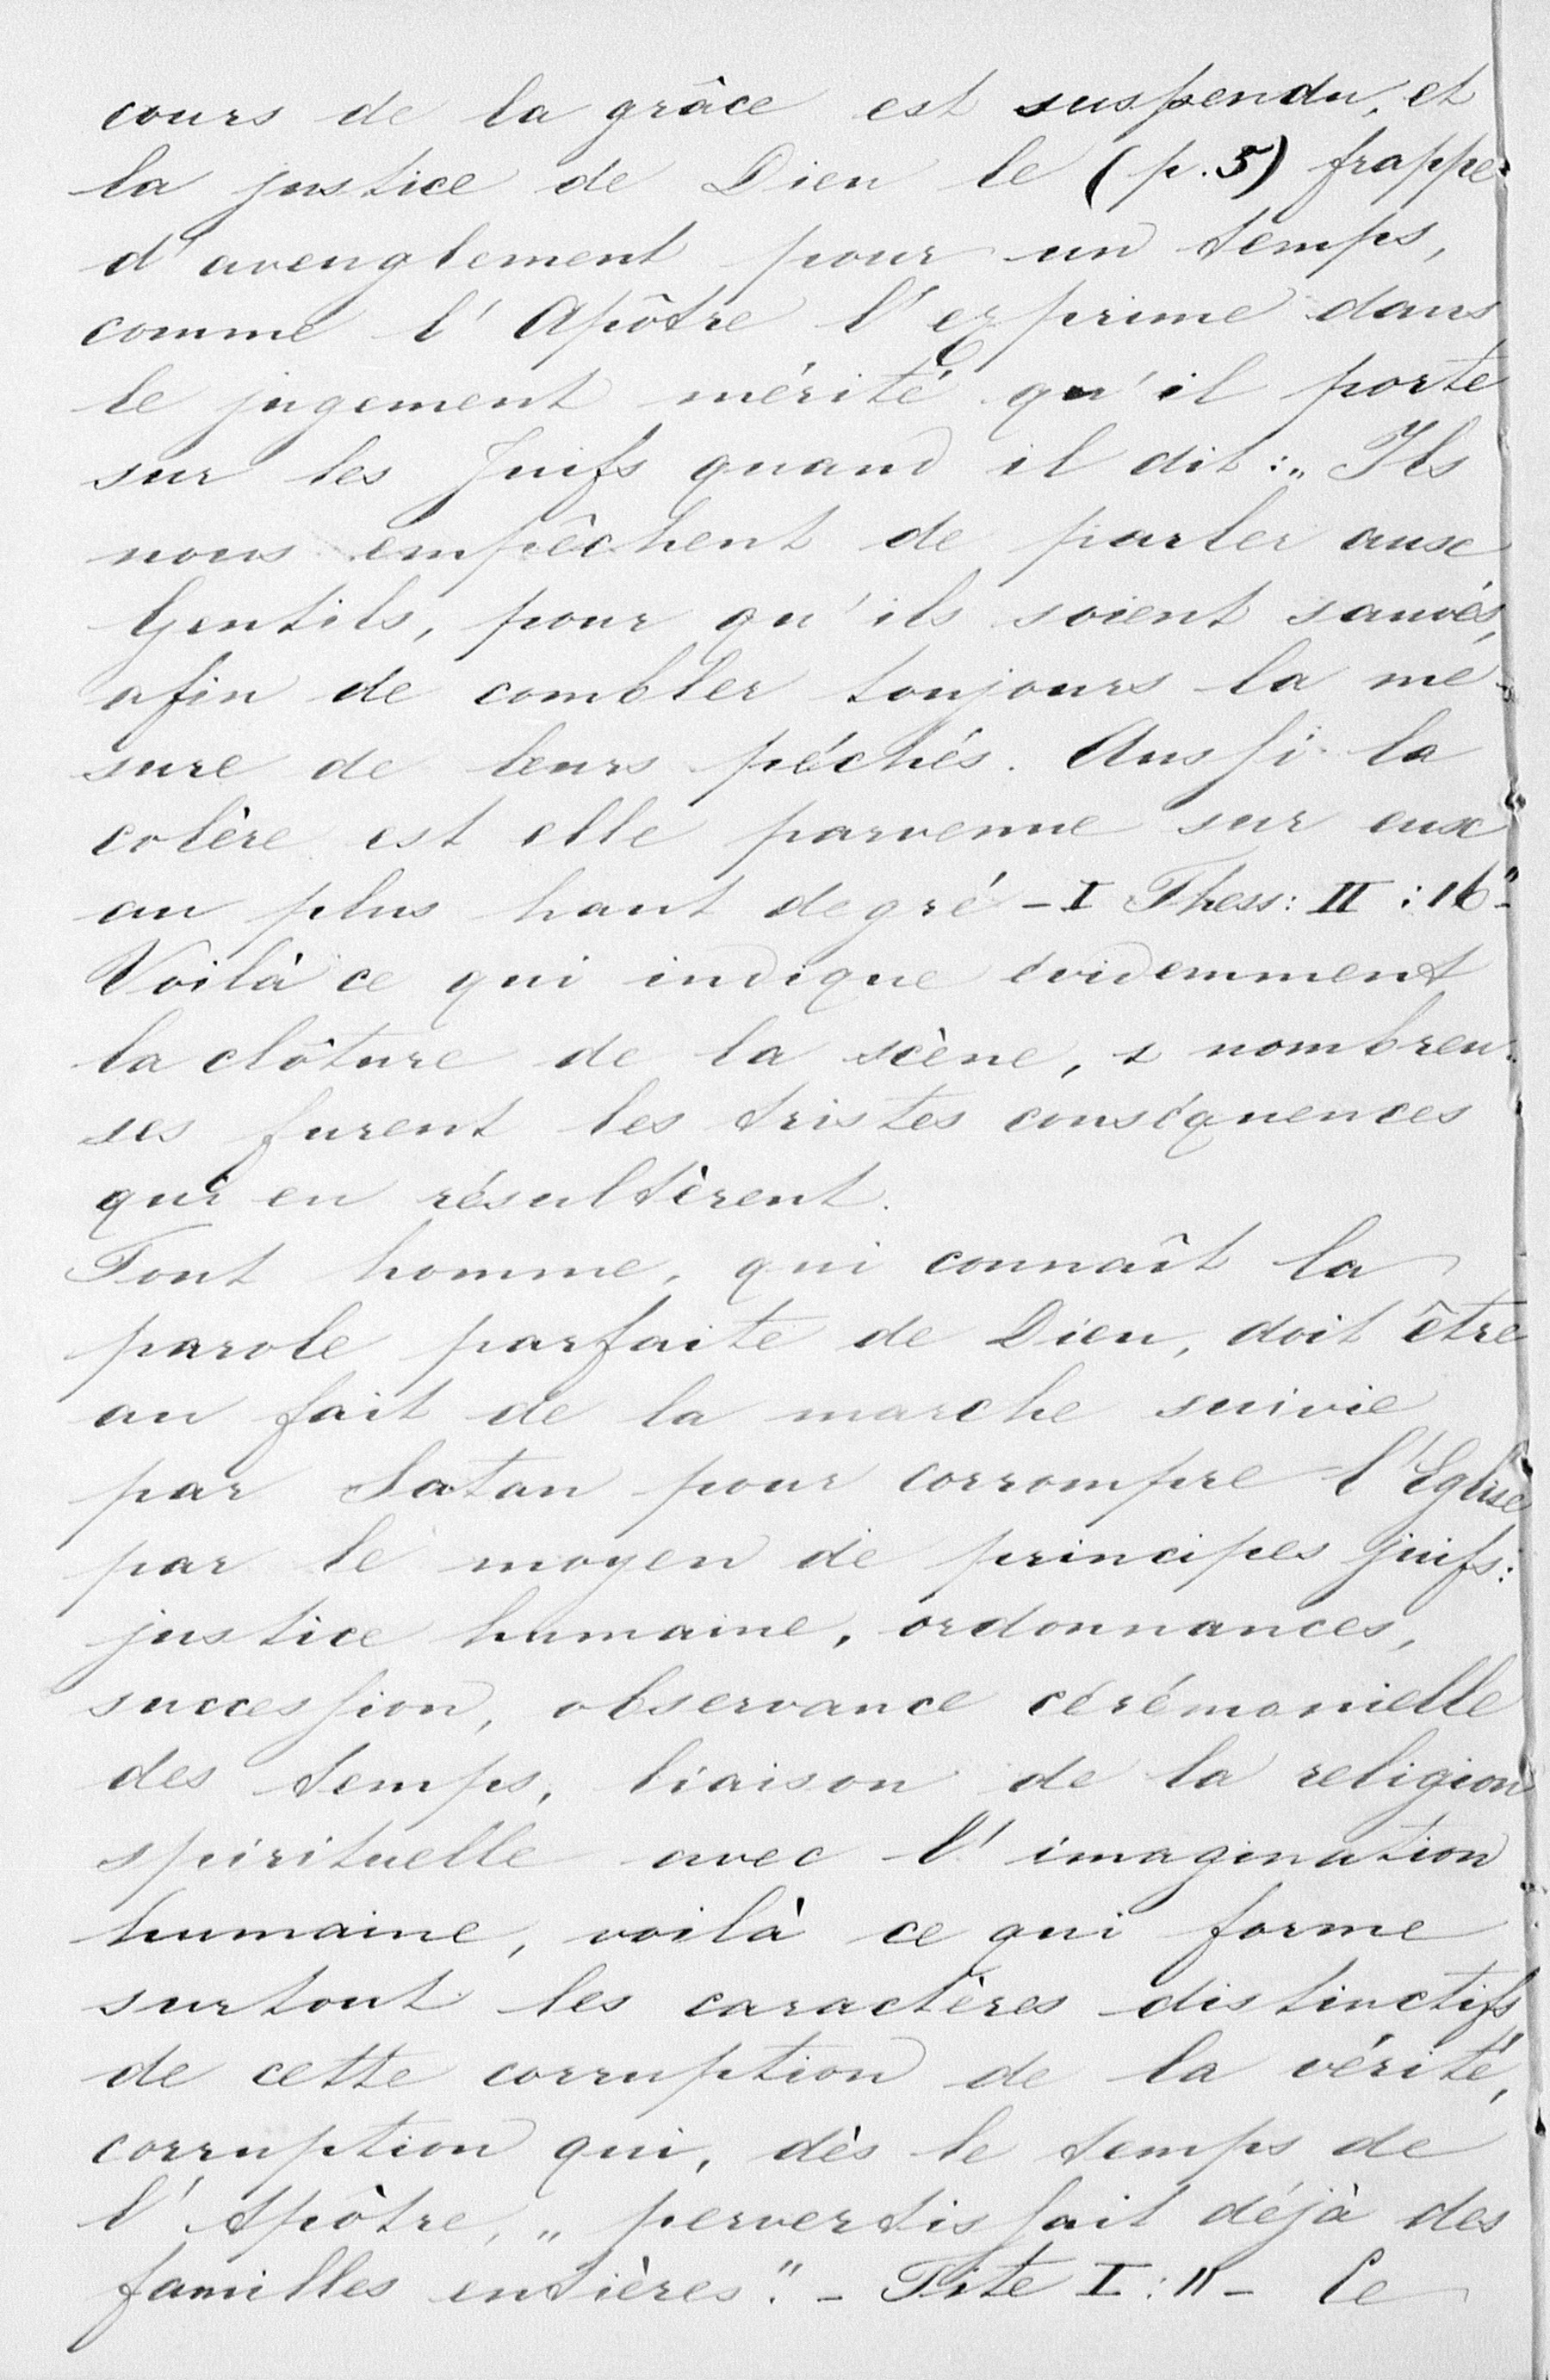 cours de la grâce est suspendu, et
la justice de Dieu le (p. 5) frappe
d'aveuglement pour un temps,
comme l'Apôtre l'exprime dans
le jugement mérité qu'il porte
sur les Juifs quand il dit : „ Ils
nous empêchent de parler aux
Gentils, pour qu'ils soient sauvés,
afin de combler toujours la me-
sure de leurs péchés. Aussi la
colère est elle parvenue sur eux
au plus haut degré - I Thess: II : 16" -
Voilà ce qui indique évidemment
la clôture de la scène, & nombreu-
ses furent les tristes conséquences
qui en résultèrent.
Tout homme, qui connaît la
parole parfaite de Dieu, doit être
au fait de la marche suivie
par Satan pour corrompre l'Eglise
par le moyen de principes juifs:
justice humaine, ordonnances,
succession, observance cérémonielle
des temps, liaison de la religion
spirituelle avec l'imagination
humaine, voilà ce qui forme
surtout les caractères distinctifs
de cette corruption de la vérité,
corruption qui, dès le temps de
l'Apôtre, „ pervertissait déjà des
familles entières". - Tite I : 11 - Ce